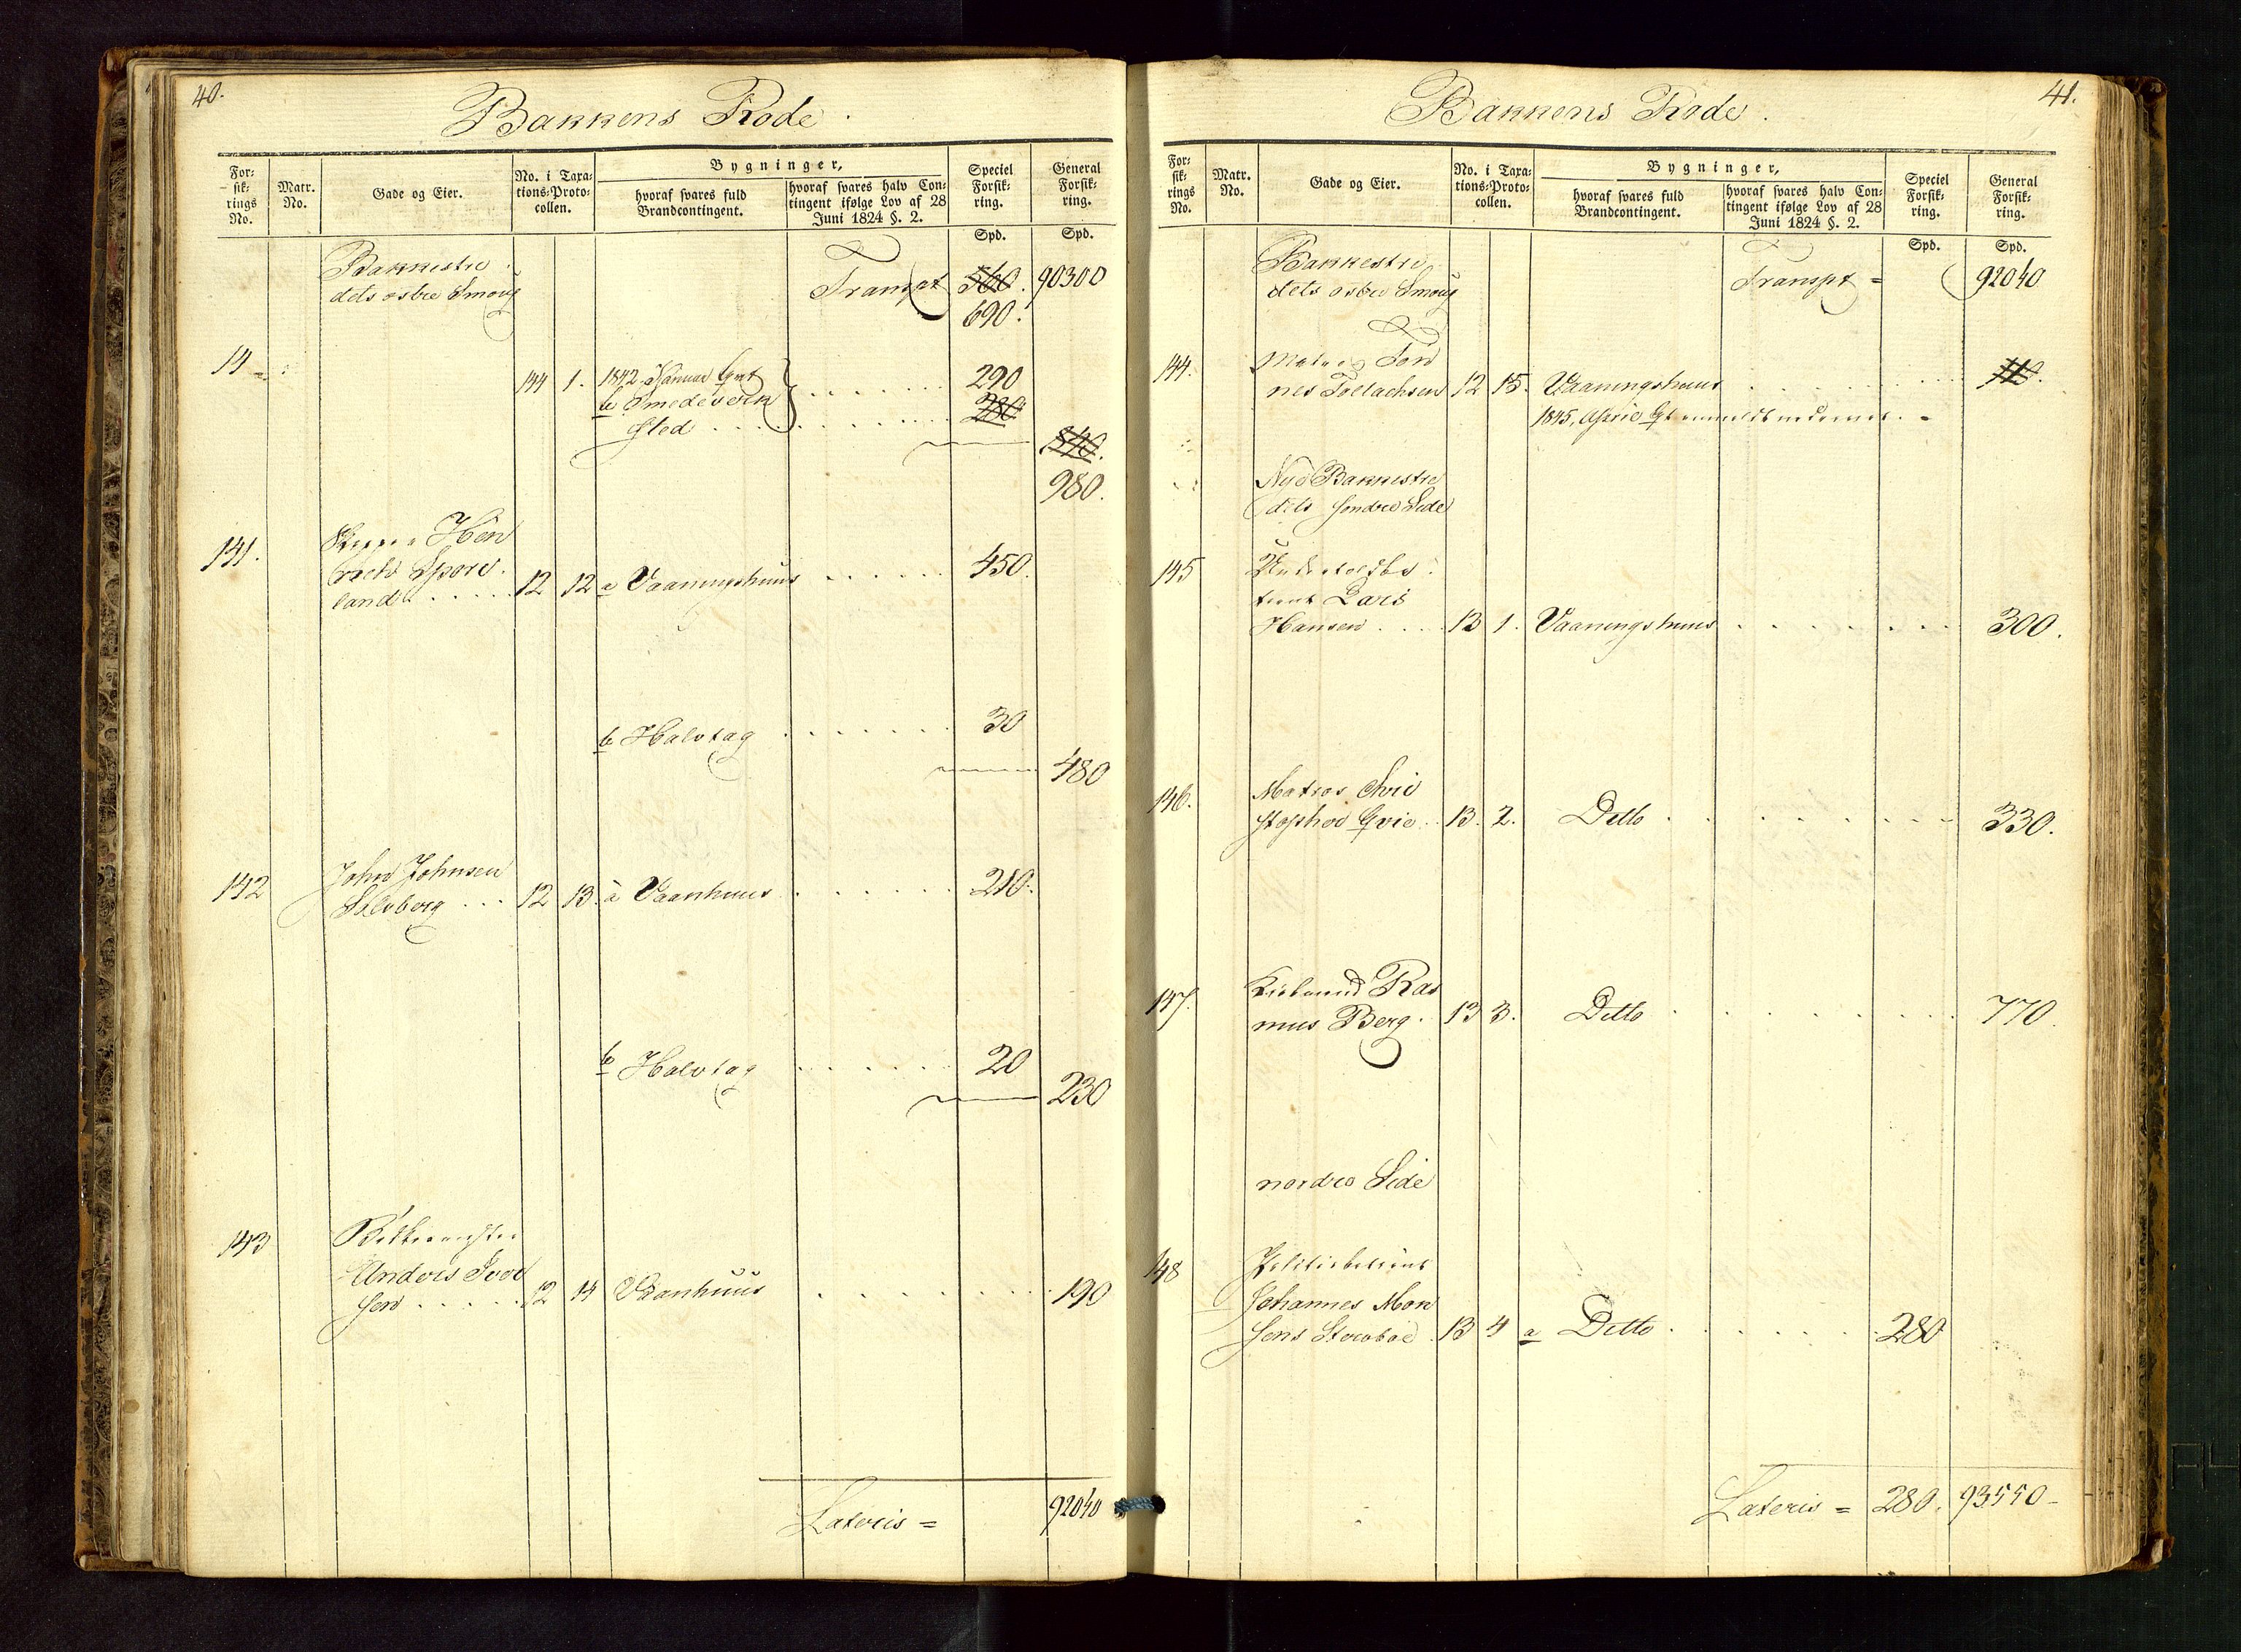 40.
Bakkens Rode.
For-
sik-
rings
No.
Matr.
No.
Gade og Eier.
No. i Taxa-
tions-Proto-
collen.
Bygninger,
hvoraf svares fuld
Brandcontingent.
hvoraf svares halv Con-
tingent ifølge Lov af 28
Juni 1824 §. 2.
Speciel
Forsik-
ring.
General
Forsik-
ring.
Spd. Spd.
Bakkestræ
dets østre Smoug Transpt 560. 90300
690.
14 144 1. 1842 Januar 290
b Smedeverk
sted 280
840.
980.
141. Hen
rich Spore
land 12 12 a Vaaningshuus 450.
b Halvtag 30
480
142 John Johnsen
Sælvberg 12 13. a Vaanhuus 210.
b Halvtag 20
230
143
Anders Iver
sen 12 14 Vaanhuus 190
Lateris = 92040
41.
Bakkens Rode.
For-
sik-
rings
No.
Matr.
No.
Gade og Eier.
No. i Taxa-
tions-Proto-
collen.
Bygninger,
hvoraf svares fuld
Brandcontingent.
hvoraf svares halv Con-
tingent ifølge Lov af 28
Juni 1824 §. 2.
Speciel
Forsik-
ring.
General
Forsik-
ring.
Spd. Spd.
Bakkestræ
dets østre Smoug Transpt = 92040
144. Tøn
nes Tollachsen 12 15. Vaaningshuus
1845, April
Nye Bakkestræ
dets søndre Side
145
Lars
Hansen 13 1. Vaaningshuus 300.
146. Matros Chri
stopher Qvie 13. 2. Ditto 330.
147. Ras
mus Berg. 13 3. Ditto 770.
nordre Side
148 Politiebetient
Johannes Mon
sens 13 4 a Ditto 280
Lateris = 280. 93550